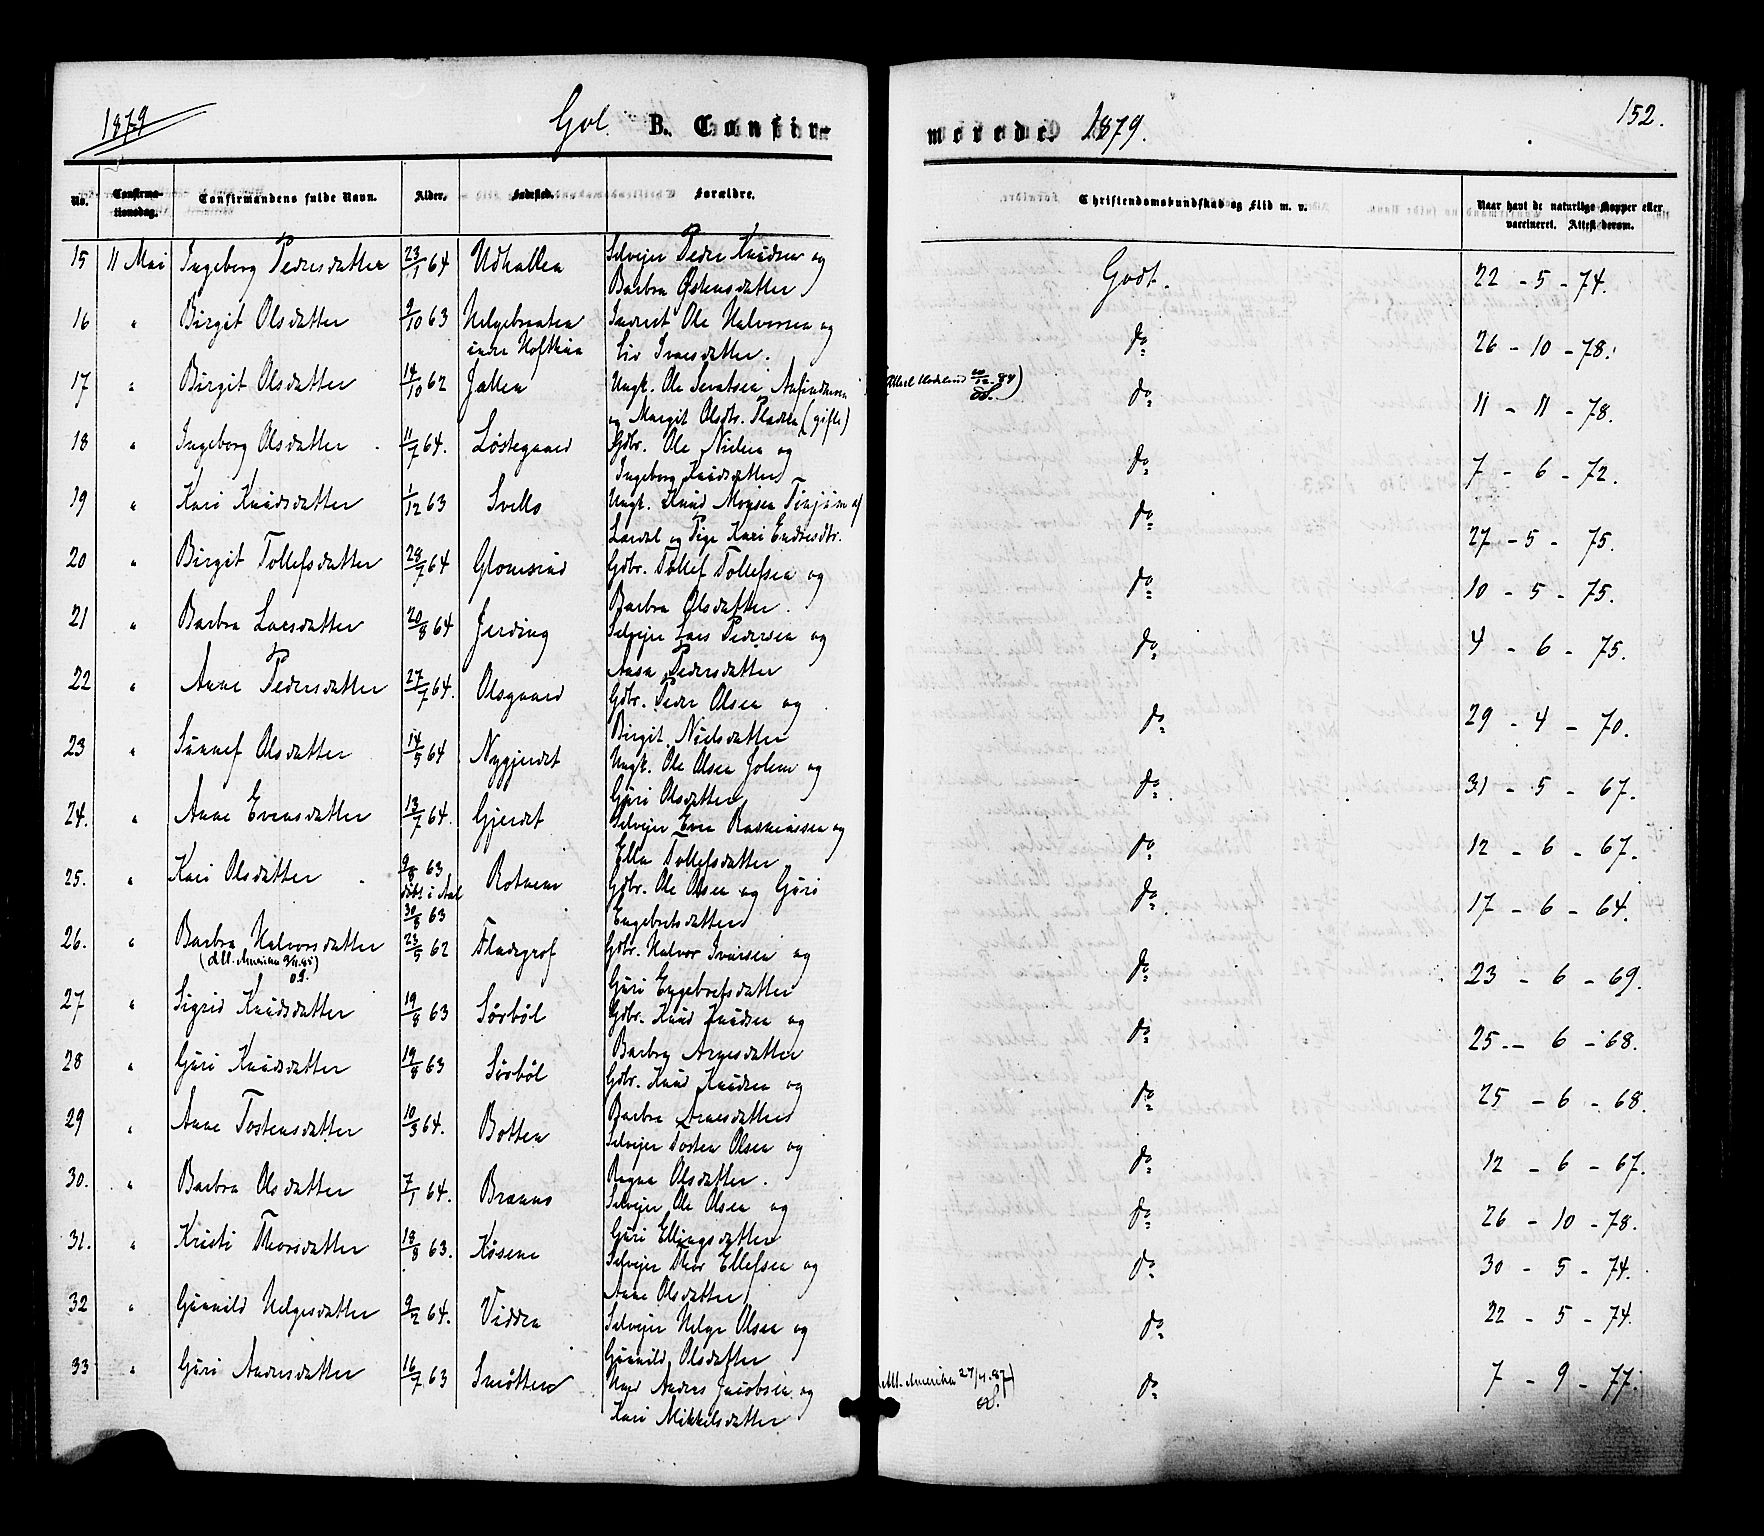 1879
Gol. B. Confirmerede. 1879.
152.
No. Confirmationsdag. Confirmandens fulde Navn. Alder. Fødested. Forældre. Christendomskundskab og Flid m. v. Naar havt de naturlige Kopper eller vaccineret. Attest derom.
15 11 Mai Ingeborg Pedersdatter 23/1 64 Selvejer Peder Knudsen og Godt. 22 - 5 - 74.
Barbra Østensdatter
16 " Birgit Olsdatter 9/10 63 Helgebraaten Inderst Ole Halvorsen og do 26 - 10 - 78.
indre Hofthun Liv Iversdatter.
17 " Birgit Olsdatter 14/10 62 Jallen Ungk. Ole do 11 - 11 - 78.
og Margit Olsdtr. (gifte)
18 " Ingeborg Olsdatter 11/7 64. Løstegaard Gdbr. Ole Nielsen og do 7 - 6 - 72.
Ingeborg Knudsdatter
19 " Kari Knudsdatter 1/12 63 Svello Ungk. Knud Monsen Tønjum af do 27 - 5 - 75.
Lærdal og Pige Kari Endresdtr.
20 " Birgit Tollefsdatter 28/7 64 Glomsrud Gdbr. Tollef Tollefsen og do 10 - 5 - 75.
Barbra Olsdatter.
21 " Barbra Larsdatter 20/8 64 Jerding Selvejer Lars Pedersen og do 4 - 6 - 75.
Aasa Pedersdatter
22 " Anne Pedersdatter 27/7 64. Olsgaard Gdbr. Peder Olsen og do 29 - 4 - 70.
Birgit Nielsdatter
23 " Sünnef Olsdatter 14/5 64 Nygjerdet Ungk. Ole Olsen og do 31 - 5 - 67.
Guri Olsdatter
24. " Anne Evensdatter 13/7 64. Gjerdet Selvejer Even Rasmussen og do 12 - 6 - 67.
Ella Tollefsdatter
25. " Kari Olsdatter 9/8 63 døbt i Aal 30/8 63 Rotneim Gdbr. Ole Olsen og Guri do 17 - 6 - 64.
Engebretsdatter
26. " Barbra Halvorsdatter 23/5 62 Fladegrof Gdbr. Halvor Iversen og do 23 - 6 - 69.
Guri Engebretsdatter
27 " Sigrid Knudsdatter 19/8 63 Sørbøl Gdbr. Knud Knudsen og do 25 - 6 - 68.
Barbra Arnesdatter
28 " Guri Knudsdatter 19/8 63 Sørbøl Gdbr. Knud Knudsen og do 25 - 6 - 68.
Barbra Arnesdatter
29 " Anne Tostensdatter 10/3 64. Botten Selvejer Tosten Olsen og do 12 - 6 - 67.
Ragna Olsdatter.
30. " Barbra Olsdatter 7/1 64. Selvejer Ole Olsen og do 26 - 10 - 78.
Guri Ellingsdatter
31. " Kristi Thorsdatter 18/8 63. Selvejer Thor Ellefsen og do 30 - 5 - 74.
Anne Olsdatter
32 " Gunnild Helgesdatter 9/2 64. Vidden Selvejer Helge Olsen og do 22 - 5 - 74.
Gunnild Olsdatter
33 " Guri Andersdatter 16/7 63 Smøtten Anders Jacobsen og (Att. Amerika 27/4.87) do 7 - 9 - 77.
Kari Mikkelsdatter